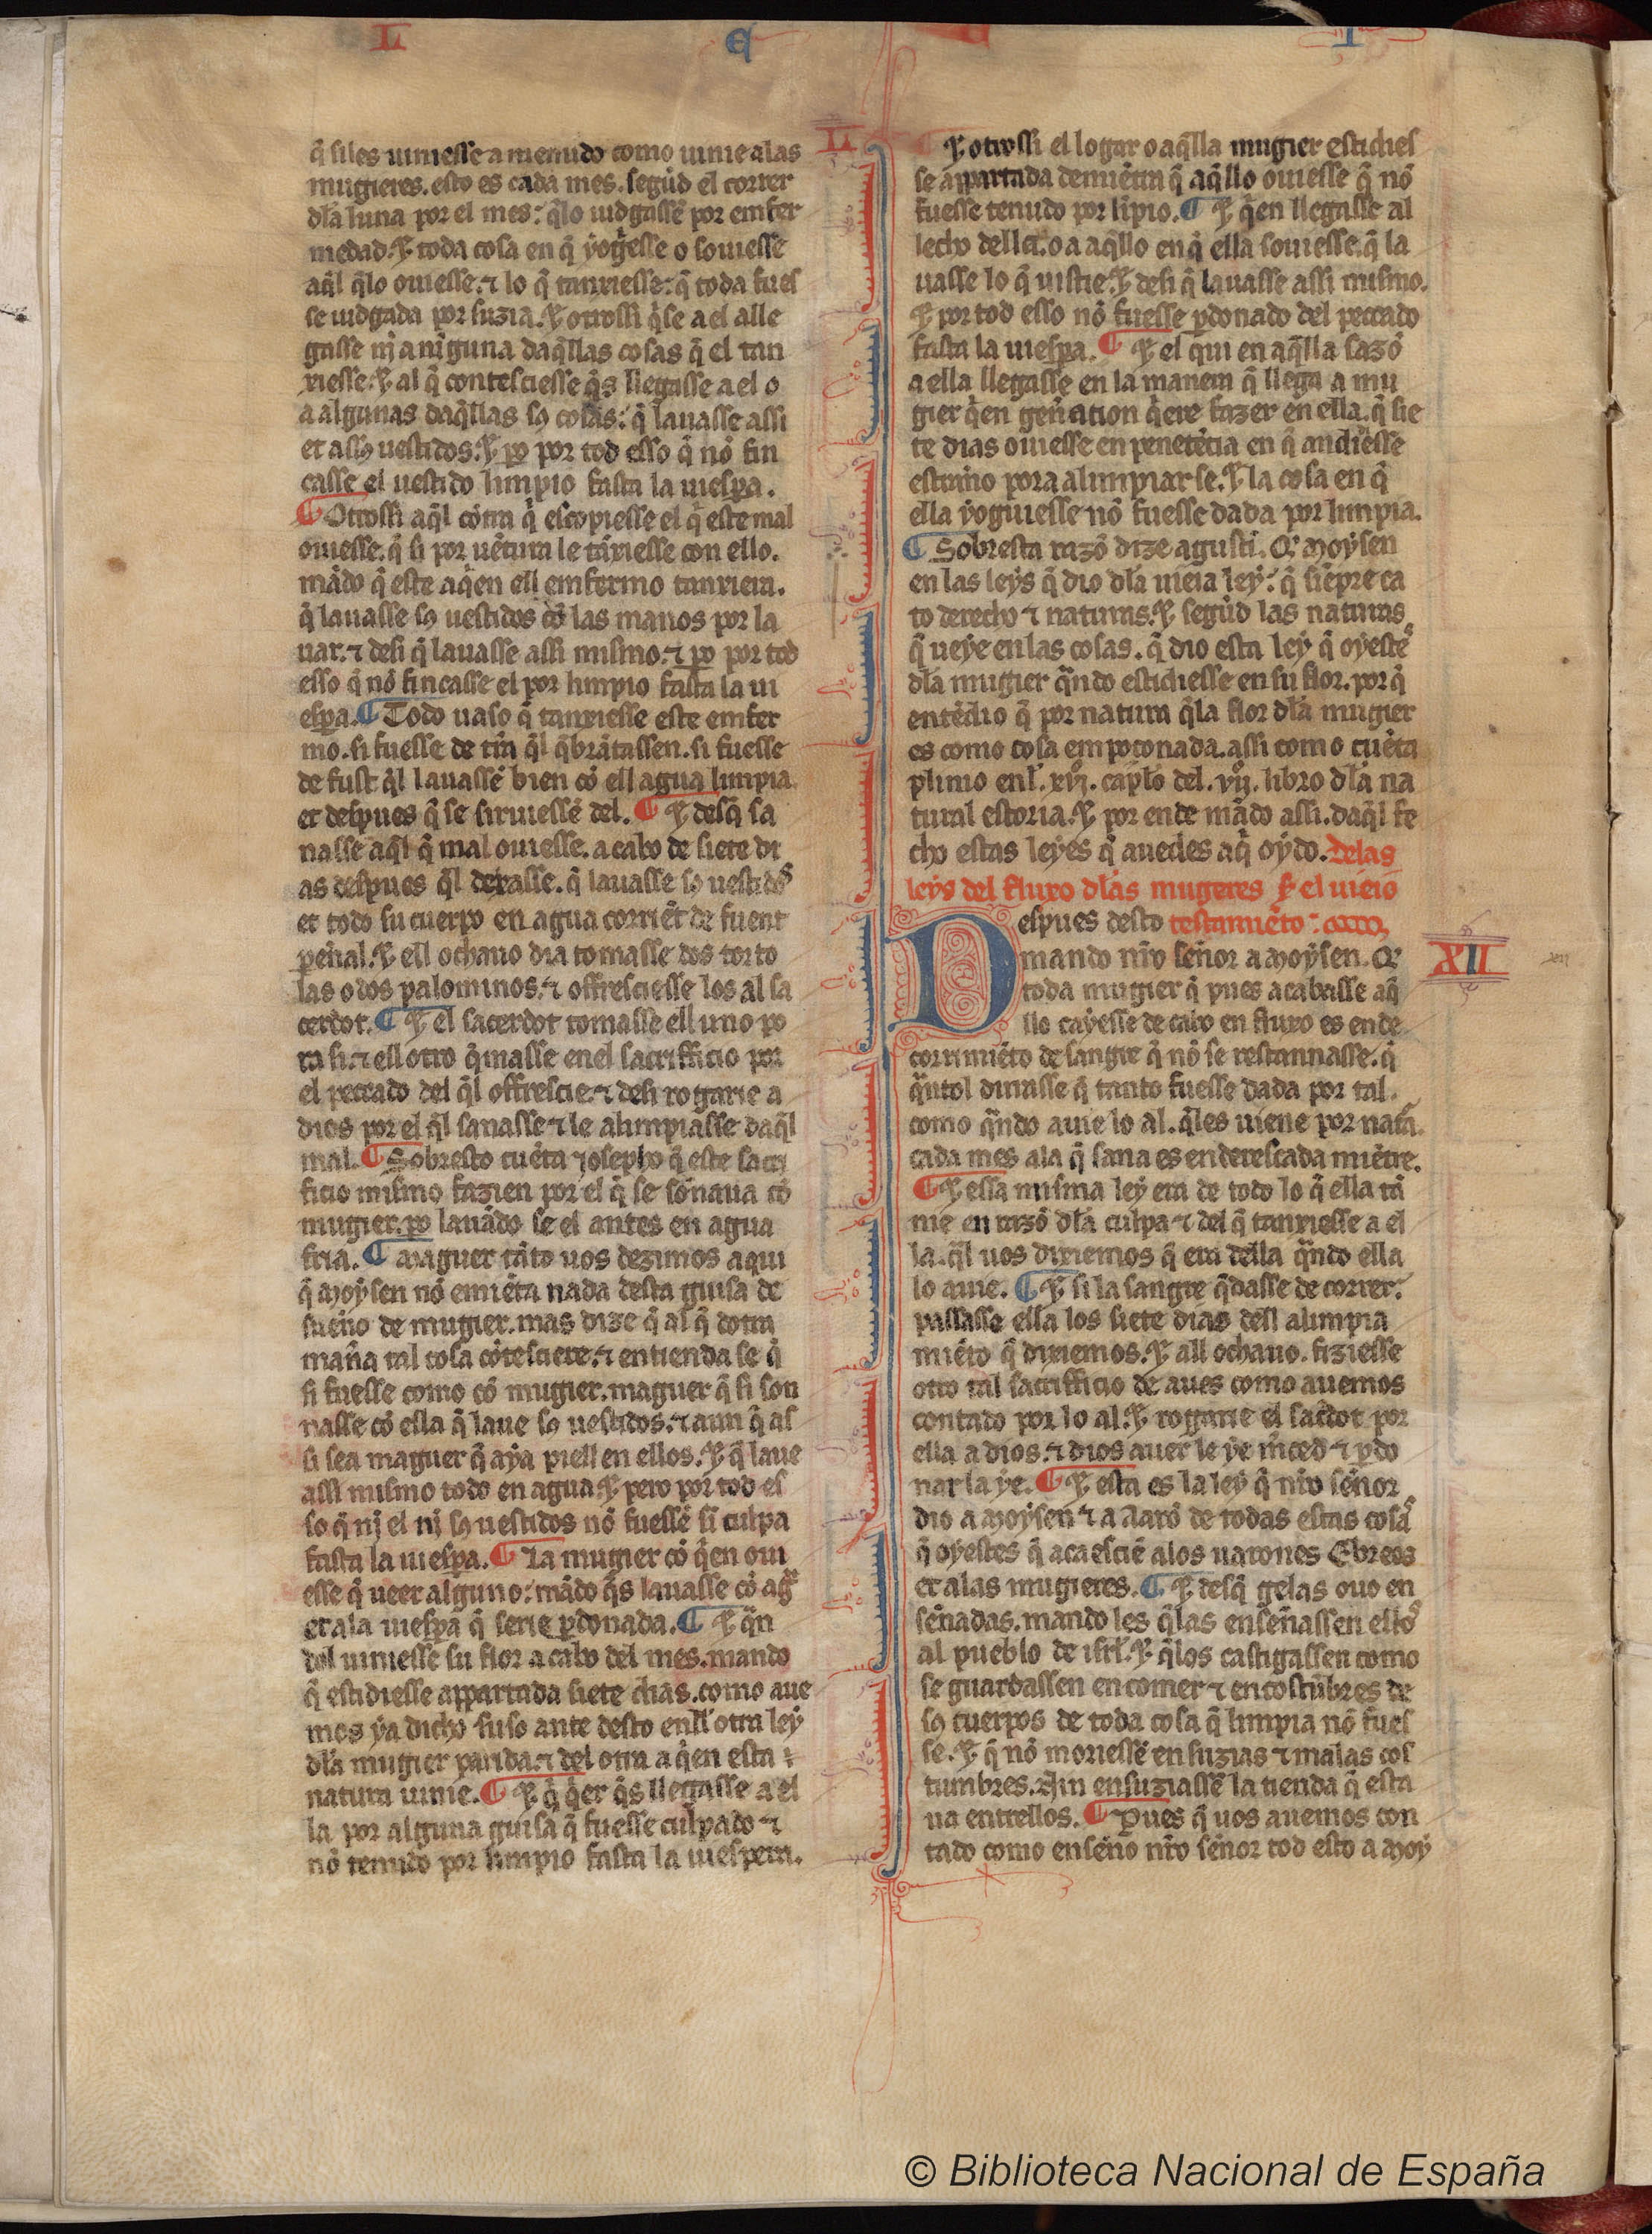 L E U I
q̃ si les uiniesse a menudo como uinie a las
mugieres. esto es cada mes. segũd el correr
dl̃a luna por el mes: q̃lo iudgassẽ por emfer
medad. ⁊ toda cosa en q̃ yog̃esse o souiesse
aq̃l q̃lo ouiesse. ⁊ lo q̃ tanxiesse: q̃ toda fues
se iudgada por suzia. ⁊ otrossi q̃ se a el alle
gasse nj a nĩguna daq̃llas cosas q̃ el tan
xiesse. ⁊ al q̃ contesciesse q̃s llegasse a el o
a algunas daq̃llas sꝯ cosas: q̃ lauasse assi
et a sꝯ uestidos. ⁊ ꝑo por tod esso q̃ nõ fin
casse el uestido limpio fasta la uiesꝑa.
¶ Otrossi aq̃l cõtra q̃ escopiesse el q̃ este mal
ouiesse. q̃ si por uẽtura le tãxiesse con ello.
mãdo q̃ este aq̃en ell emfermo tanxiera.
q̃ lauasse sꝯ uestidos cõ las manos por la
uar. ⁊ desi q̃ lauasse assi mismo. ⁊ ꝑo por tod
esso q̃ nõ fincasse el por limpio fasta la ui
esꝑa. ¶ Todo uaso q̃ tanxiesse este emfer
mo. si fuesse de tr̃ra q̃l q̃brãtassen. si fuesse
de fust q̃l lauassẽ bien cõ ell agua limpia.
et despues q̃ se siruiessẽ del. ¶ ⁊ desq̃ sa
nasse aq̃l q̃ mal ouiesse. a cabo de siete di
as despues q̃l dexasse. q̃ lauasse sꝯ uestidos
et todo su cuerpo en agua corriẽt de fuent
perẽnal. ⁊ ell ochauo dia tomasse dos torto
las o dos palominos. ⁊ offresciesse los al sa
cerdot. ¶ ⁊ el sacerdot tomasse ell uno po
ra si. ⁊ ell otro q̃masse en el sacrifficio por
el peccado del q̃l offrescie. ⁊ desi rogarie a
dios por el q̃l sanasse ⁊ le alimpiasse daq̃l
mal. ¶ Sobresto cuẽta iosepho q̃ este sacri
ficio mismo fazien por el q̃ se sõnaua cõ
mugier. ꝑo lauãdo se el antes en agua
fria. ¶ Maguer tãto uos dezimos aqui
q̃ Moysen nõ emiẽta nada desta guisa de
sueño de mugier. mas dize q̃ al q̃ dotra
mañа tal cosa cõtesciere. ⁊ entienda se q̃
si fuesse como cõ mugier. maguer q̃ si son
nasse cõ ella q̃ laue sꝯ uestidos. ⁊ aun q̃ as
si sea maguer q̃ aya piell en ellos. ⁊ q̃ laue
assi mismo todo en agua ⁊ pero por tod es
so q̃ nj el nj sꝯ uestidos nõ fuessẽ sĩ culpa
fasta la uiesꝑa. ¶ La mugier cõ q̃en oui
esse q̃ ueer alguno: mãdo q̃s lauasse cõ agᵃ
et a la uiesꝑa q̃ serie ꝑdonada. ¶ ⁊ q̃n
dol uiniesse su flor a cabo del mes. mando
q̃ estidiesse appartada siete dias. como aue
mos ya dicho suso ante desto enll otra ley
dl̃a mugier parida. ⁊ del otra a q̃en esta
natura uinie. ¶ ⁊ q̃ q̃er q̃s llegasse a el
la por alguna guisa q̃ fuesse culpado ⁊
nõ tenudo por limpio fasta la uiespera.
⁊ otrossi el logar o aq̃lla mugier estidies
se appartada demiẽtra q̃ aq̃llo ouiesse q̃ nõ
fuesse tenudo por lĩpio. ¶ ⁊ q̃en llegasse al
lecho della. o a aq̃llo en q̃ ella souiesse. q̃ la
uasse lo q̃ uistie. ⁊ desi q̃ lauasse assi mismo.
⁊ por tod esso nõ fuesse ꝑdonado del peccado
fasta la uiesꝑa. ¶ ⁊ el qui en aq̃lla sazõ
a ella llegasse en la manera q̃ llega a mu
gier q̃en gen̄ation q̃ere fazer en ella. q̃ sie
te dias ouiesse en penetẽcia en q̃ andiesse
estraño pora alimpiar se. ⁊ la cosa en q̃
ella yoguiesse nõ fuesse dada por limpia.
¶ Sobresta razõ dize agustĩ. Q̃ Moysen
en las leys q̃ dio dl̃a uieia ley: q̃ siẽpre ca
to derecho ⁊ naturas. ⁊ segũd las naturas
q̃ ueye en las cosas. q̃ dio esta ley q̃ oyestes
dl̃a mugier q̃ndo estidiesse en su flor. por q̃
entẽdio q̃ por natura q̃la flor dl̃a mugier
es como cosa empoçonada. assi como cuẽta
plinio enl̃. xvj. capl̃o del. vij. libro dl̃a na
tural estoria. ⁊ por ende mãdo assi. daq̃l fe
cho estas leyes q̃ auedes aq̃ oydo. De las
leys del fluxo dl̃as mugeres ẽ el uieio
Despues desto testamiẽto:
XII
mando nr̃o señor a Moysen. Q̃
toda mugier q̃ pues acabasse aq̃
llo cayesse de cabo en fluxo es en de
corrimiẽto de sangre q̃ nõ se restannasse. q̃
q̃ntol durasse q̃ tanto fuesse dada por tal.
como q̃ndo auie lo al. q̃les uiene por nat̃a.
cada mes a la q̃ sana es enderescada miẽtre.
¶ ⁊ essa misma ley era de todo lo q̃ ella tã
nie en razõ dl̃a culpa ⁊ del q̃ tanxiesse a el
la. q̃l uos dixiemos q̃ era della q̃ndo ella
lo auie. ¶ ⁊ si la sangre q̃dasse de correr.
passasse ella los siete dias dell alimpia
miẽto q̃ dixiemos. ⁊ all ochauo. fiziesse
otro tal sacrifficio de aues como auemos
contado por lo al. ⁊ rogarie el sac̃dot por
ella a dios. ⁊ dios auer le ye m̃ced ⁊ ꝑdo
nar la ye. ¶ ⁊ esta es la ley q̃ nr̃o señor
dio a Moysen ⁊ a Aarõ de todas estas cosas
q̃ oyestes q̃ acaesciẽ a los uarones Ebreos
et a las mugieres. ¶ ⁊ desq̃ gelas ouo en
señadas. mando les q̃las enseñassen ellos
al pueblo de isrl̃. ⁊ q̃los castigassen como
se guardassen en comer ⁊ en costũbres de
sꝯ cuerpos de toda cosa q̃ limpia nõ fues
se. ⁊ q̃ nõ moriessẽ en suzias ⁊ malas cos
tumbres. Nin ensuziassẽ la tienda q̃ esta
ua entrellos. ¶ Pues q̃ uos auemos con
tado como enseño nr̃o señor tod esto a Moy
© Biblioteca Nacional de España